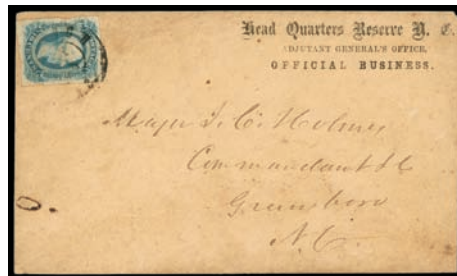 Head Quarters Reserve N. C.
ADJUTANT GENERAL'S OFFICE,
OFFICIAL BUSINESS.
Major J. C. Holmes
Commandant
Greensboro
N.C.